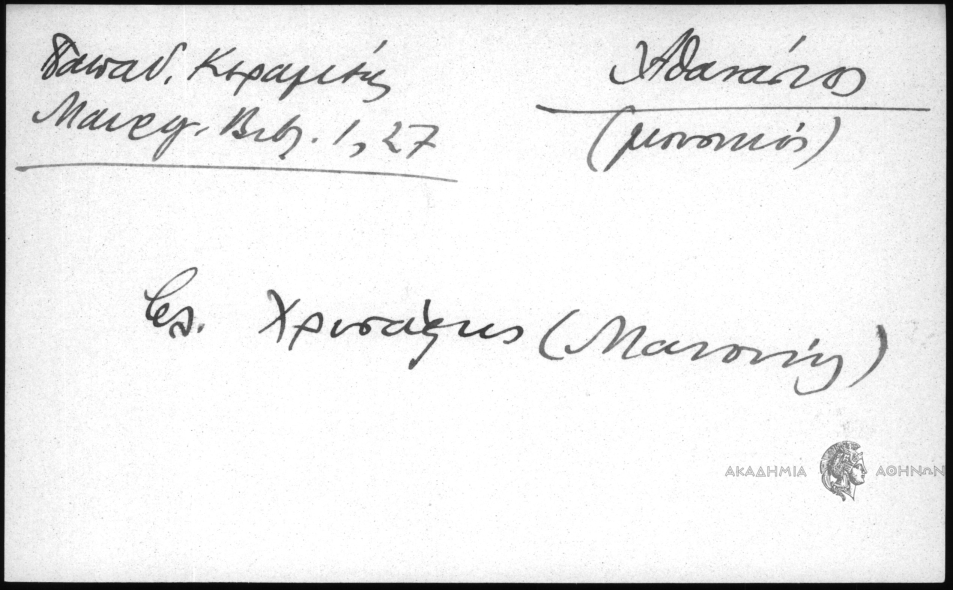 Παπαδ. Κεραμεύς
Μαυρογ. Βιβλ. 1, 27
Ἀθανάσιος
(μουσικός)
βλ. Χρυσάφης (Μανουὴλ)
ΑΚΑΔΗΜΙΑ ΑΘΗΝΩΝ